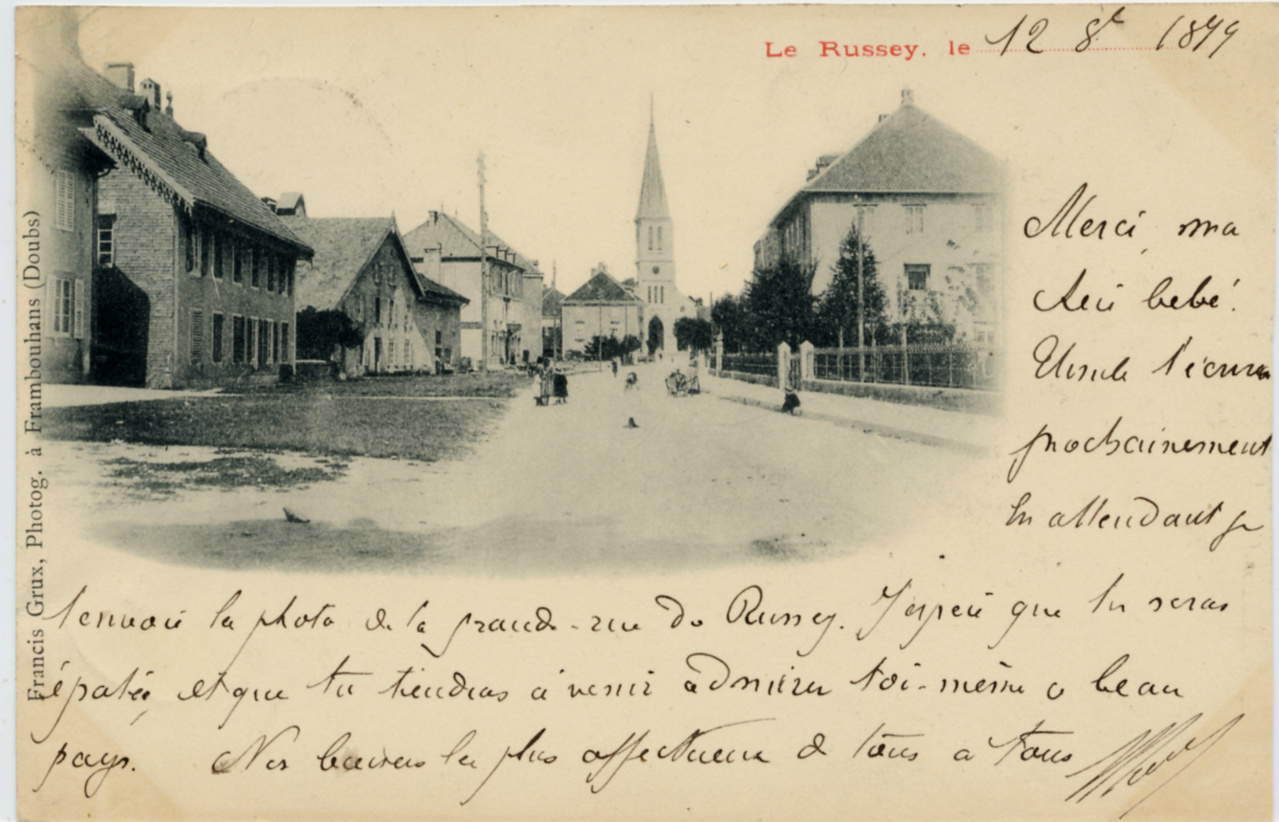 Le Russey, le 12 8e 1899
Merci, ma
bébé.
Ursule t'écrira
prochainement
En attendant je
t'envoie la photo de la grande-rue du Russey. J'espère que tu seras
épatée, et que tu tiendras à venir admirer toi-même ce beau
pays. Nos baisers les plus affectueux de tous à tous
Francis Grux, Photog. à Frambouhans (Doubs)